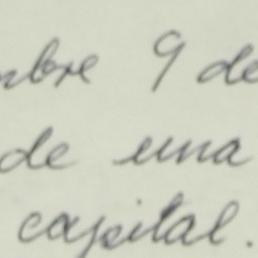 mbre 9 de
de una
capital.